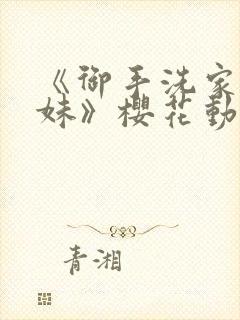 《御手洗家
妹》櫻花動
青湘